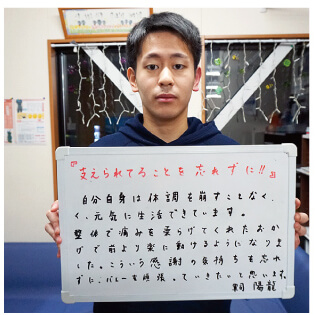 『支えられてることを忘れずに!!』
自分自身は体調を崩すことなく、
く、元気に生活できています。
整体で痛みを和らげてくれたおか
げで前より楽に動けるようになりま
した。こういう感謝の気持ちを忘れ
ずに、バレーを頑張っていきたいと思います。
陽龍